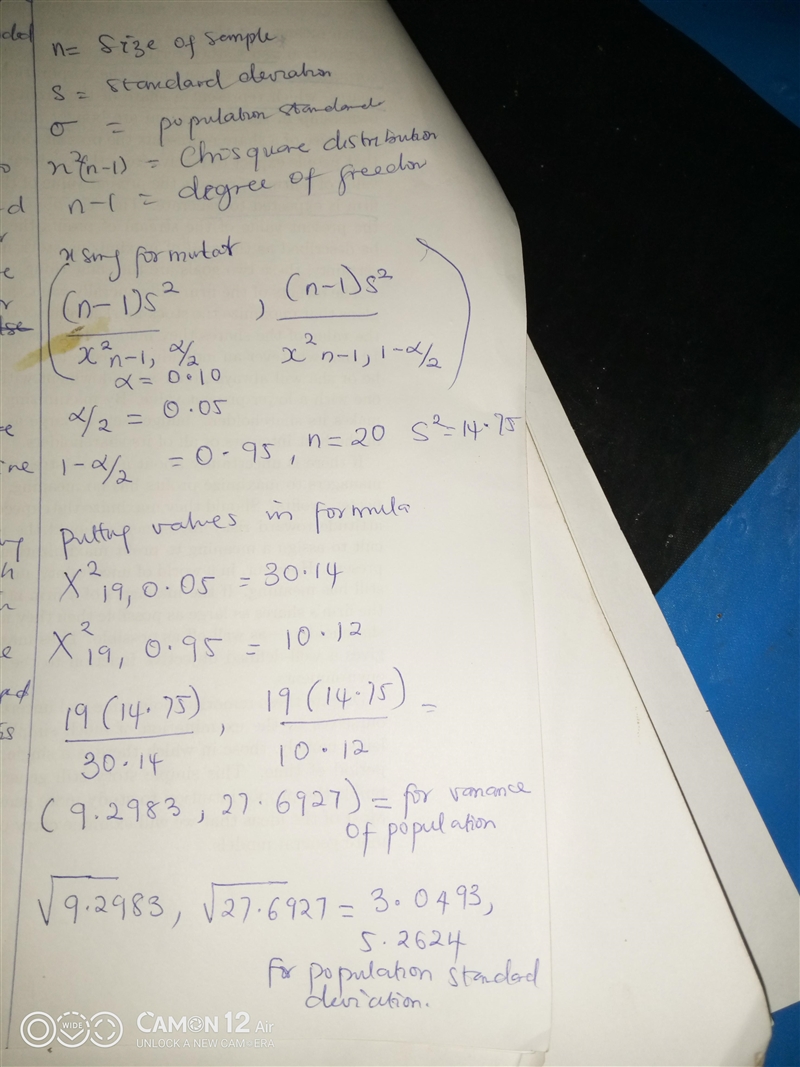 n= Size of Sample
s = standard deviation
σ = population standard
x²(n-1) = Chisquare distribution
n-1 = degree of freedom
using formular
(n-1)S² , (n-1)S²
x² n-1, α/2 x² n-1, 1-α/2
α = 0.10
α/2 = 0.05
1-α/2 = 0.95, n=20 S²=14.75
putting values in formula
X² 19, 0.05 = 30.14
X² 19, 0.95 = 10.12
19(14.75) , 19(14.75) =
30.14 10.12
(9.2983, 27.6927) = for variance
of population
√9.2983, √27.6927 = 3.0493,
5.2624
for population standard
deviation.
WIDE CAMON 12 Air
UNLOCK A NEW CAMERA